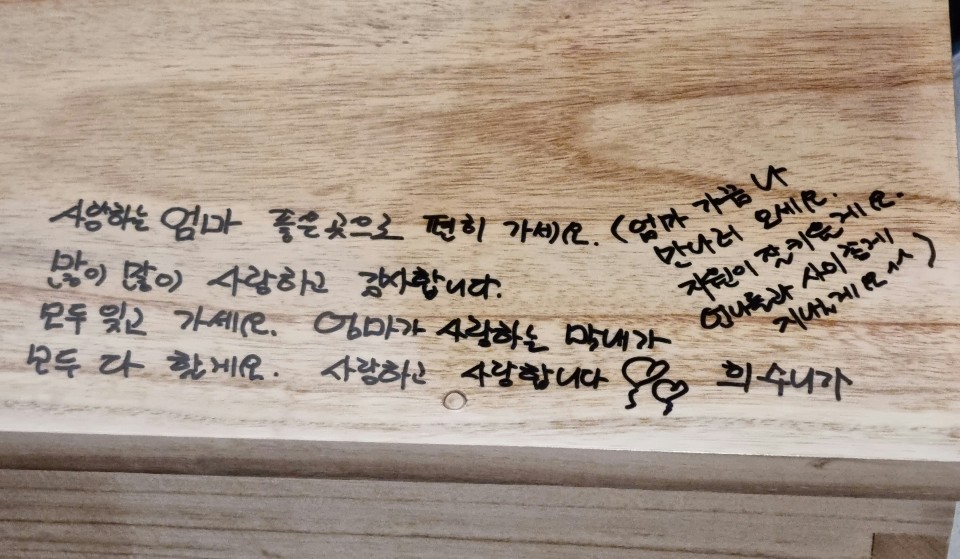 사랑하는 엄마 좋은곳으로 편히 가세요.
많이 많이 사랑하고 감사합니다.
모두 잊고 가세요. 엄마가 사랑하는 막내가
모두 다 할게요. 사랑하고 사랑합니다 희수니가
(엄마 가끔 나
만나러 오세요.
자원이 잘키울게요.
언니들과 사이좋게
지낼게요^^)